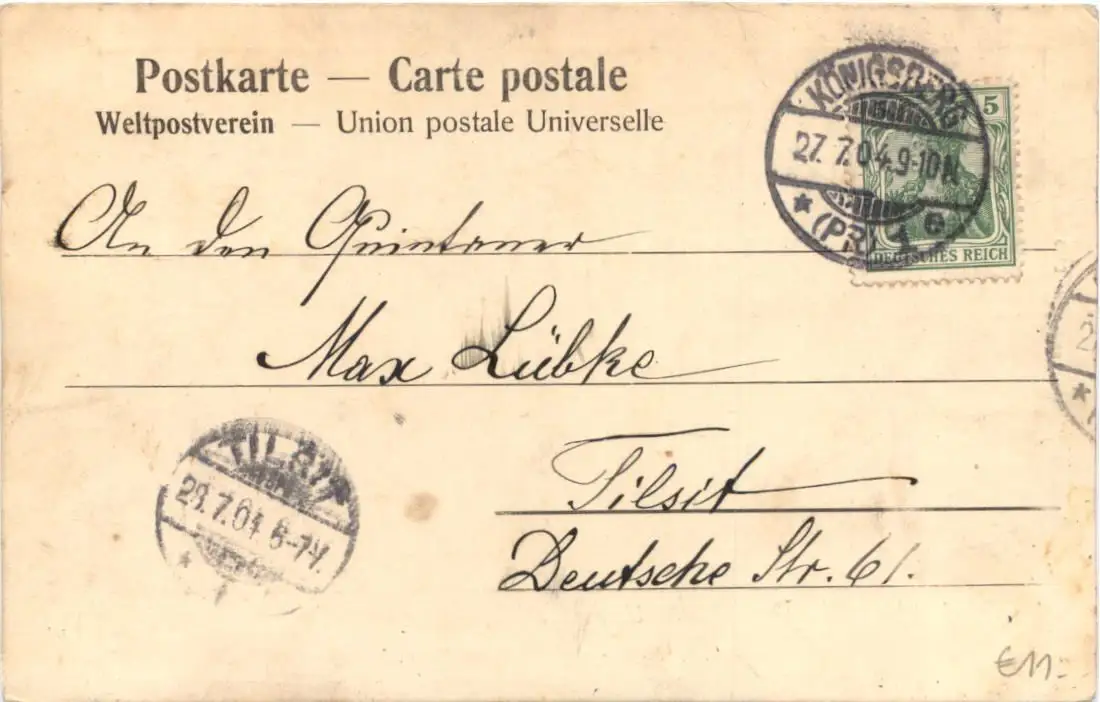 Postkarte — Carte postale
Weltpostverein — Union postale Universelle
KÖNIGSBERG
27.7.04.9-10N.
★ (PR.) 1 c
5
DEUTSCHES REICH
An den Quintaner
Max Lübke
Tilsit
Deutsche Str. 61.
TILSIT
7.04 6-7V.
€11.-